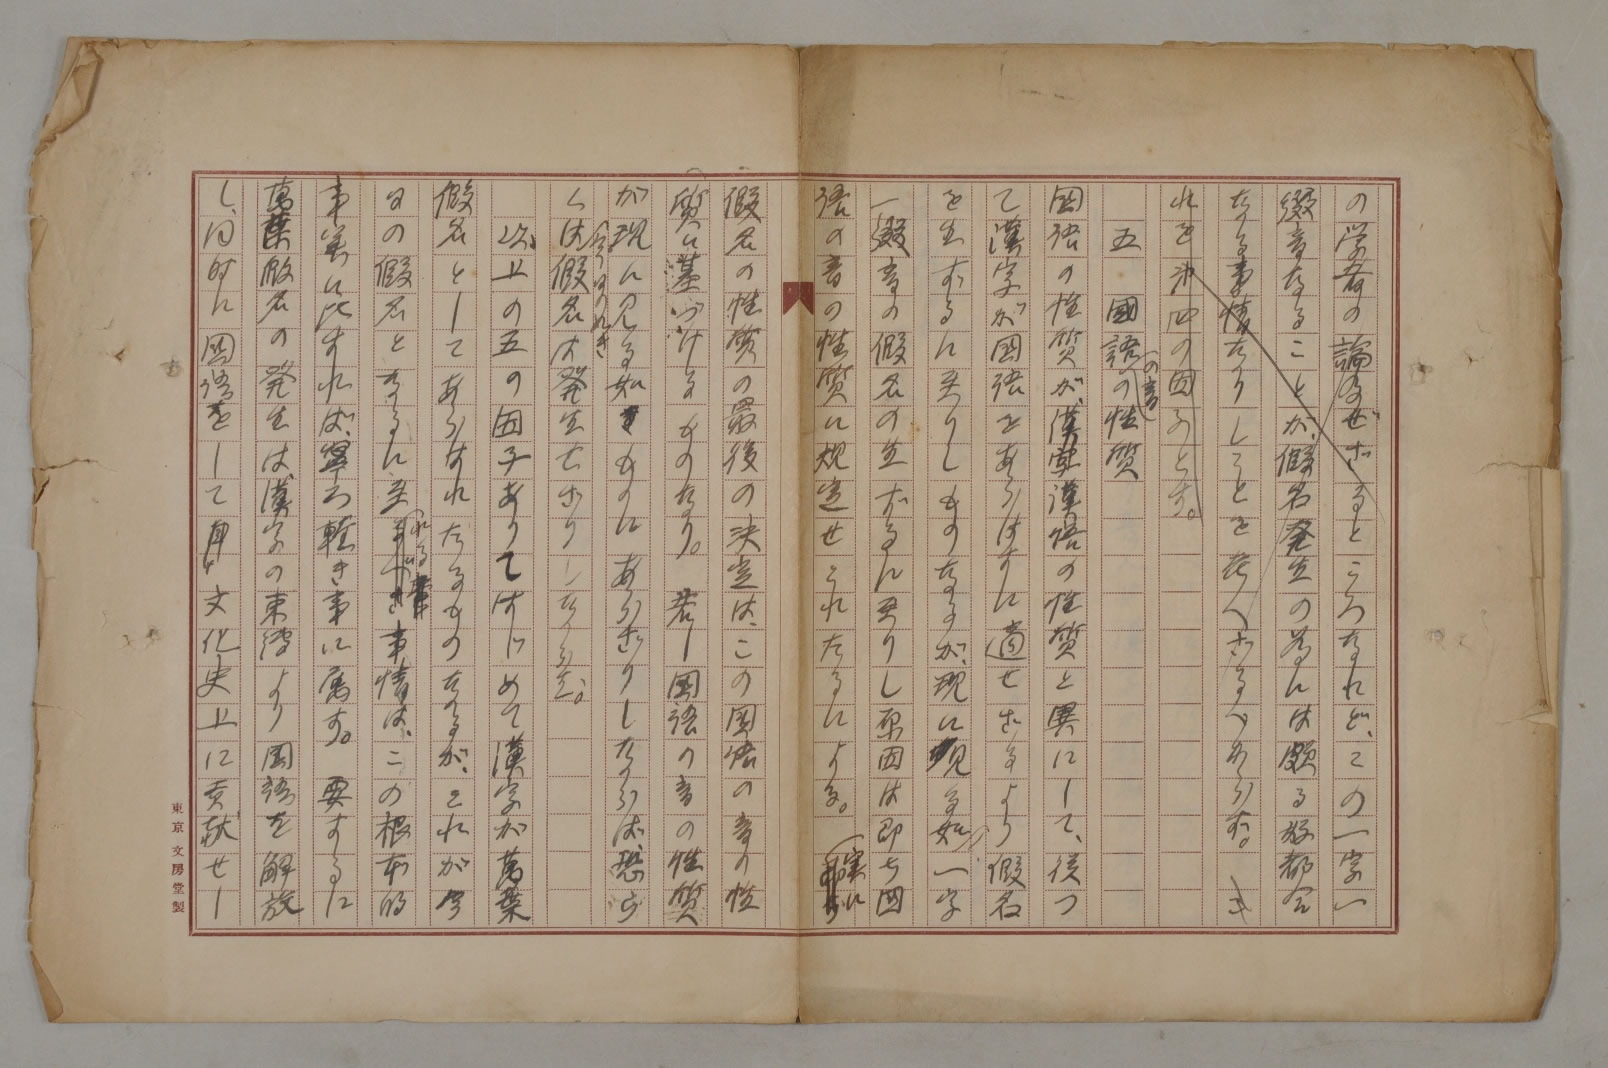 の学者の論及せざるところなれど、この一字一
綴音なることが、假名発生の為には頗る好都合
なる事情なりしことを考へざるべからず。こ
れを第四の因子とす。
五 國語の音の性質
国語の性質が、漢字漢語の性質と異にして、従つ
て漢字が国語をあらはすに適せざるより假名
を生ずるに至りしものなるが、現に見る如く一字
一綴音の假名の生ずるに至りし原因は即ち国
語の音の性質に規定せられたるによる。実に
假名の性質の最後の決定は、この国語の音の性
質に基づけるものなり。若し国語の音の性質
が現に見る如きものにあらざりしならば、恐ら
くは今日の如き假名は発生せざりしならむ。
以上の五の因子ありてはじめて漢字が萬葉
假名としてあらはれたるものなるが、これが今
日の假名となるに至れる事情は、この根本的
事業に比すれば、寧ろ軽き事に属す。要するに
萬葉假名の発生は、漢字の束縛より国語を解放
し、同時に国語をして文化史上に貢献せし
東京文房堂製